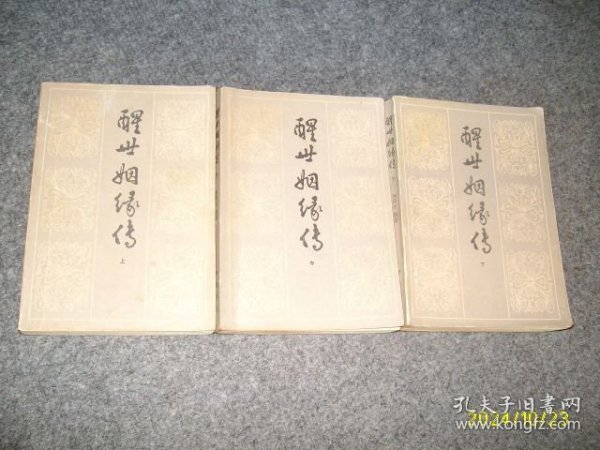 醒世姻缘传
上
醒世姻缘传
中
醒世姻缘传
醒世姻缘传
下
孔夫子旧書网
www.kongfz.com
2024/10/23